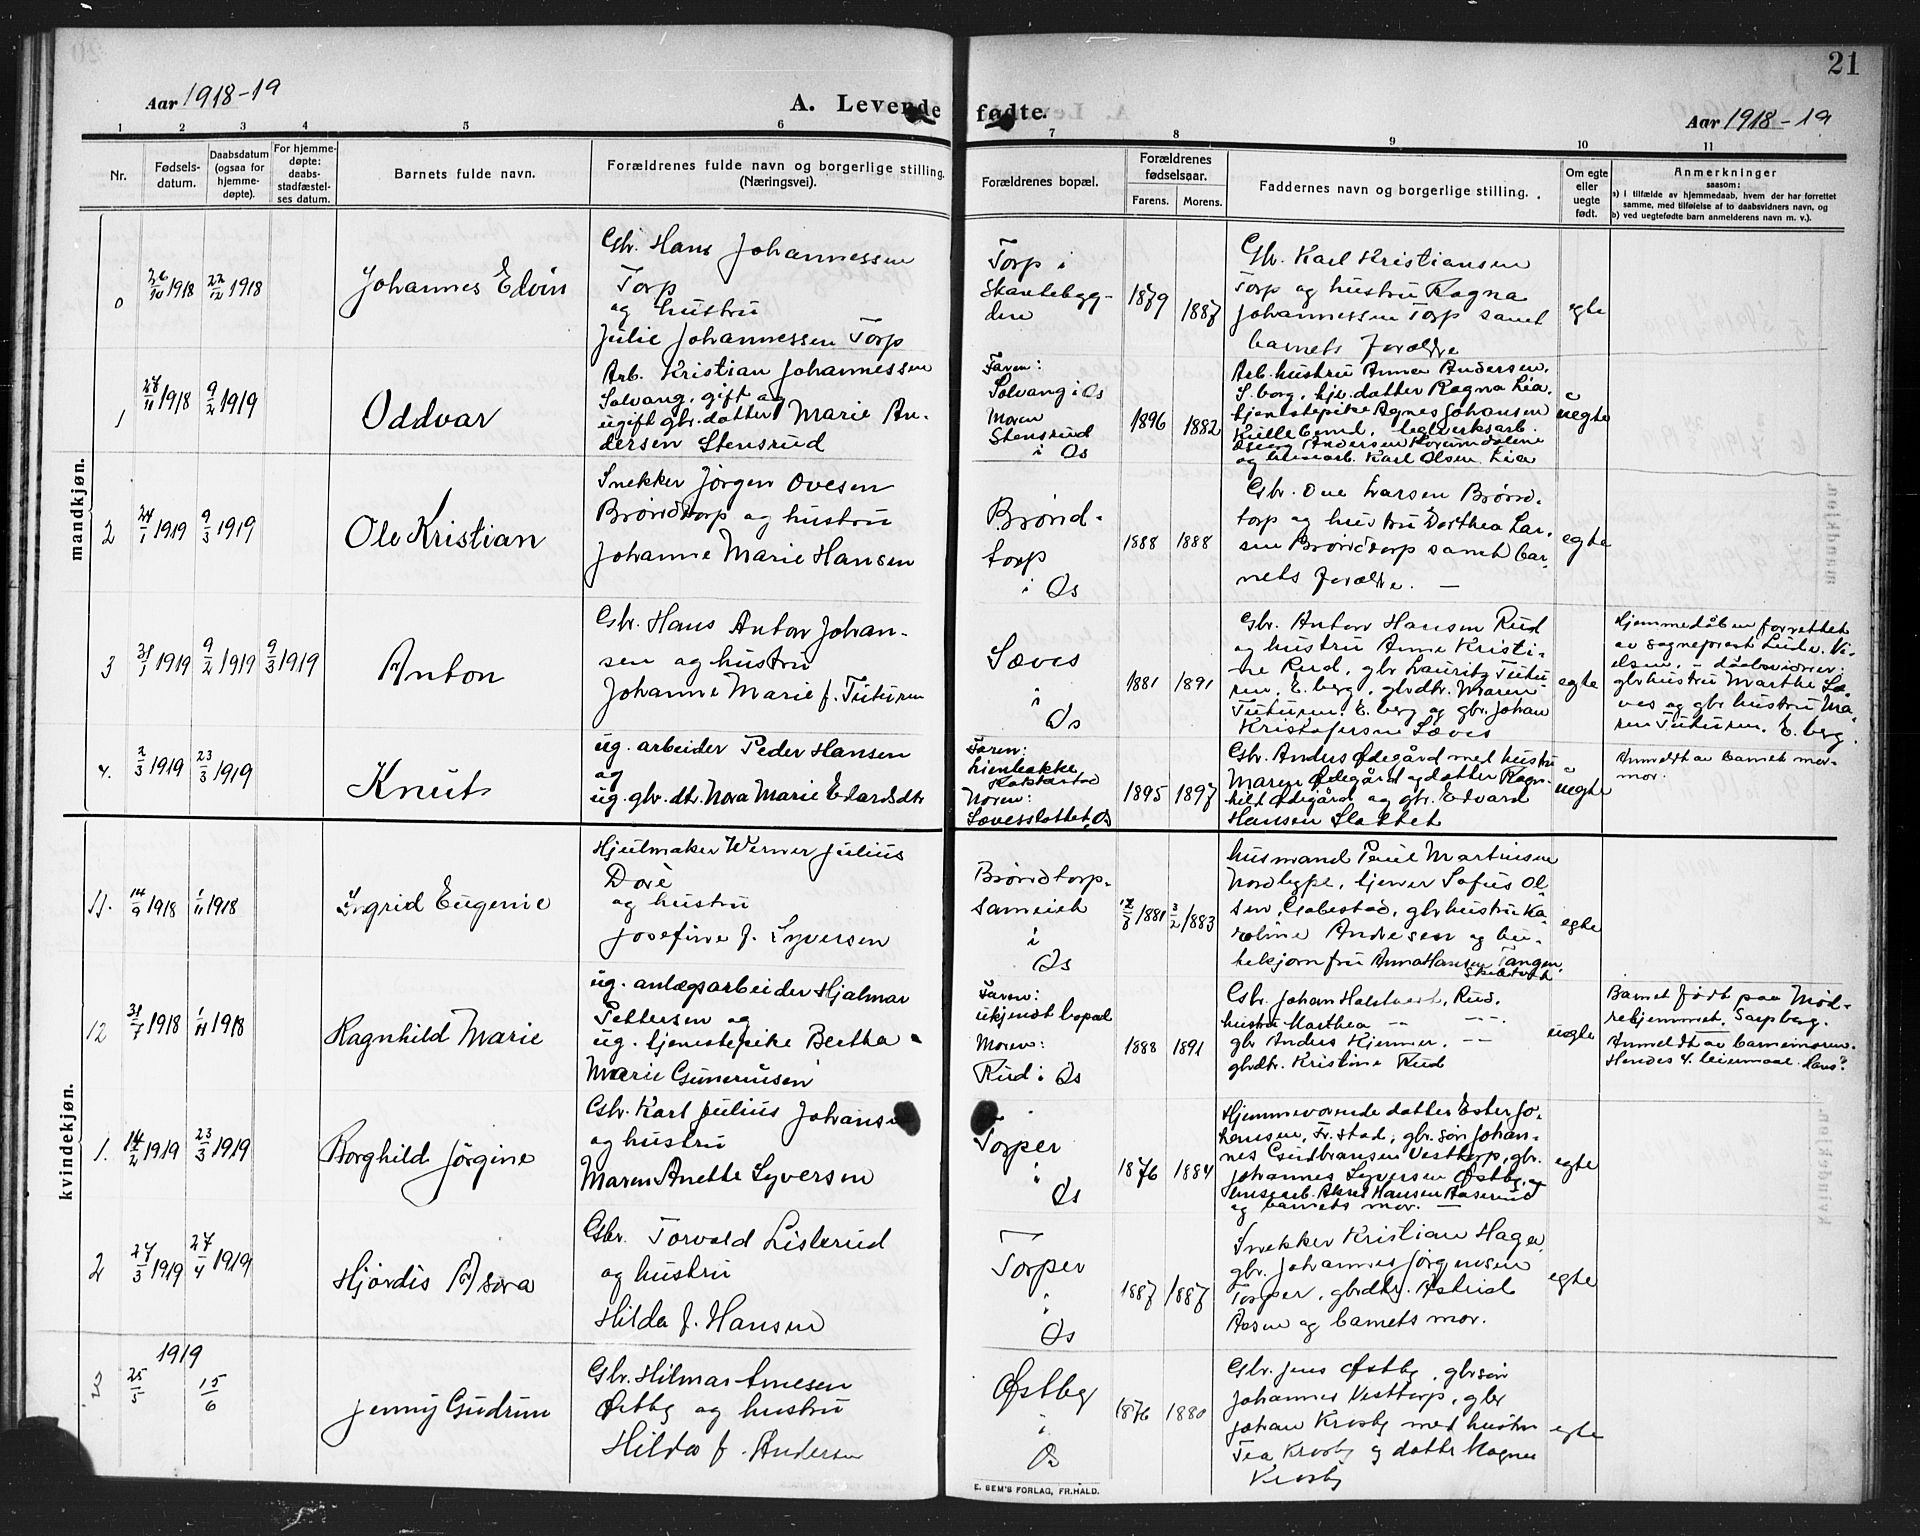 21
Aar 1918-19
A. Levende fødte.
Aar 1918-19
1 2 3 4 5 6 7 8 9 10 11
Nr.
Fødsels-
datum.
Daabsdatum
(ogsaa for
hjemme-
døpte).
For hjemme-
døpte:
daabs-
stadfæstel-
ses datum.
Barnets fulde navn.
Forældrenes fulde navn og borgerlige stilling.
(Næringsvei).
Forældrenes bopæl.
Forældrenes
fødselsaar.
Farens. Morens.
Faddernes navn og borgerlige stilling.
Om egte
eller
uegte
født.
Anmerkninger
saasom:
a) i tilfælde av hjemmedaab, hvem der har forrettet
samme, med tilføielse af to daabsvidners navn, og
b) ved uegtefødte barn anmelderens navn m. v.).
mandkjøn.
0
26/10 1918
22/12 1918
Johannes Edvin
Gbr. Hans Johannessen
Torp
og hustru
Julie Johannessen Torp
Torp i
Skautebyg-
den
1879
1887
Gbr. Karl Kristiansen
Torp og hustru Ragna
Johannessen Torp samt
barnets forældre
egte
1
27/11 1918
9/2 1919
Oddvar
Arb. Kristian Johannessen
Solvang, gift og
ugift gbr. datter Marie An-
dersen Stensrud
Faren:
Solvang i Os
Moren
Stensrud
i Os
1896
1882
Arb. hustru Anna Andersen,
S.borg, hjv. datter Ragna Lia,
tjenestepike Agnes Johansen
teglverksarb.
og Karl Olsen Lia
uegte
2
24/1 1919
9/3 1919
Ole Kristian
Snekker Jørgen Ovesen
Brøndtorp og hustru
Johanne Marie Hansen
Brønd-
torp
i Os
1888
1888
Gbr. Ove Larsen Brønd-
torp og hustru Dorthea Lar-
sen Brøndtorp samt bar-
nets forældre. —
egte
3
31/1 1919
9/2 1919
9/3 1919
Anton
Gbr. Hans Anton Johan-
sen og hustru
Johanne Marie f. Tuturen
Sæves
i
Os
1881
1891
Gbr. Anton Hansen Rud
og hustru Anne Kristi-
ne Rud, gbr Lauritz Tutu-
ren, E. berg, gbrdtr. Maren
Tuturen, E. berg og gbr. Johan
Kristofersen Sæves
egte
Hjemmedåben forrettet
av sogneprest Lüder Ni-
elsen, - dåbsvidner:
gbrhustru Marthe Sæ-
ves og gbr hustru Ma-
ren Tuturen, E. berg.
4.
2/3 1919
23/3 1919
Knut
ug. arbeider Peder Hansen
og
ug. gbr. dtr. Nora Marie Edardsdtr
Faren:
Lienbakke
Rakkestad
Moren:
Sævesslottet, Os
1895
1897
Gbr. Anders Ødegård med hustru
Maren Ødegård og datter Ragn-
hild Ødegård og gbr. Edvard
Hansen Slottet
uegte
Anmeldt av barnets mor-
mor.
kvindekjøn.
11.
14/9 1918
1/11 1918
Ingrid Eugenie
Hjulmaker Werner Julius
Dore
og hustru
Josefine f. Syversen
Brøndtorp-
sameiet
i
Os
1881
3/2 1883
husmand Paul Martinsen
Nordbype, tjener Sofus Ol-
sen, Gabestad, gbrhustru Ka-
roline Andresen og bu-
tekjomfru Anna Hansen Tangen,
egte
12
31/7 1918
1/11 1918
Ragnhild Marie
ug. anlægsarbeider Hjalmar
Pettersen og
ug. tjenestepike Bertha
Marie Gunerinsen
Faren:
ukjendt bopæl
Moren:
Rud i Os
1888
1891
Gbr. Johan Halstvedt, Rud,
hustru Marthea -- ---
gbr Anders Hjemner, --
gbrdtr. Kristine Rud
uegte
Barnet født paa Mød-
rehjemmet, Sarpsborg.
Anmeldt av barnemoren.
Hendes 4. leiermaal. Hans ?
1.
14/2 1919
23/3 1919
Borghild Jørgine
Gbr. Karl Julius Johansen
og hustru
Maren Anette Syversen
Torper
i
Os
1876
1884
Hjemmeværende datter Ester Jo-
hansen, Fr.stad, gbr. søn Johan-
nes Gudbransen Vesttorp, gbr.
Johannes Syversen Østby, og
Aksel Hansen Aaserud
og barnets mor. —
egte
2
27/3 1919
27/4 1919
Hjördis Asora
Gbr. Torvald Listerud
og hustru
Hilda f. Hansen
Torper
i
Os
1887
1887
Snekker Kristian Haga,
gbr. Johannes Jørgensen
Torper, gbrdtr. Astrid
Aasen og barnets mor.
egte
3
1919
25/5
15/6
Jenny Gudrun
Gbr. Hilmar Arnesen
Østby og hustru
Hilda f. Andersen
Østby
i
Os
1876
1880
Gbr. Jens Østby, gbrsøn
Johannes Vesttorp, gbr
Johan Krosby med hustru
Tea Krosby og datter Magna
Krosby
egte
E. SEM'S FORLAG, FR.HALD.